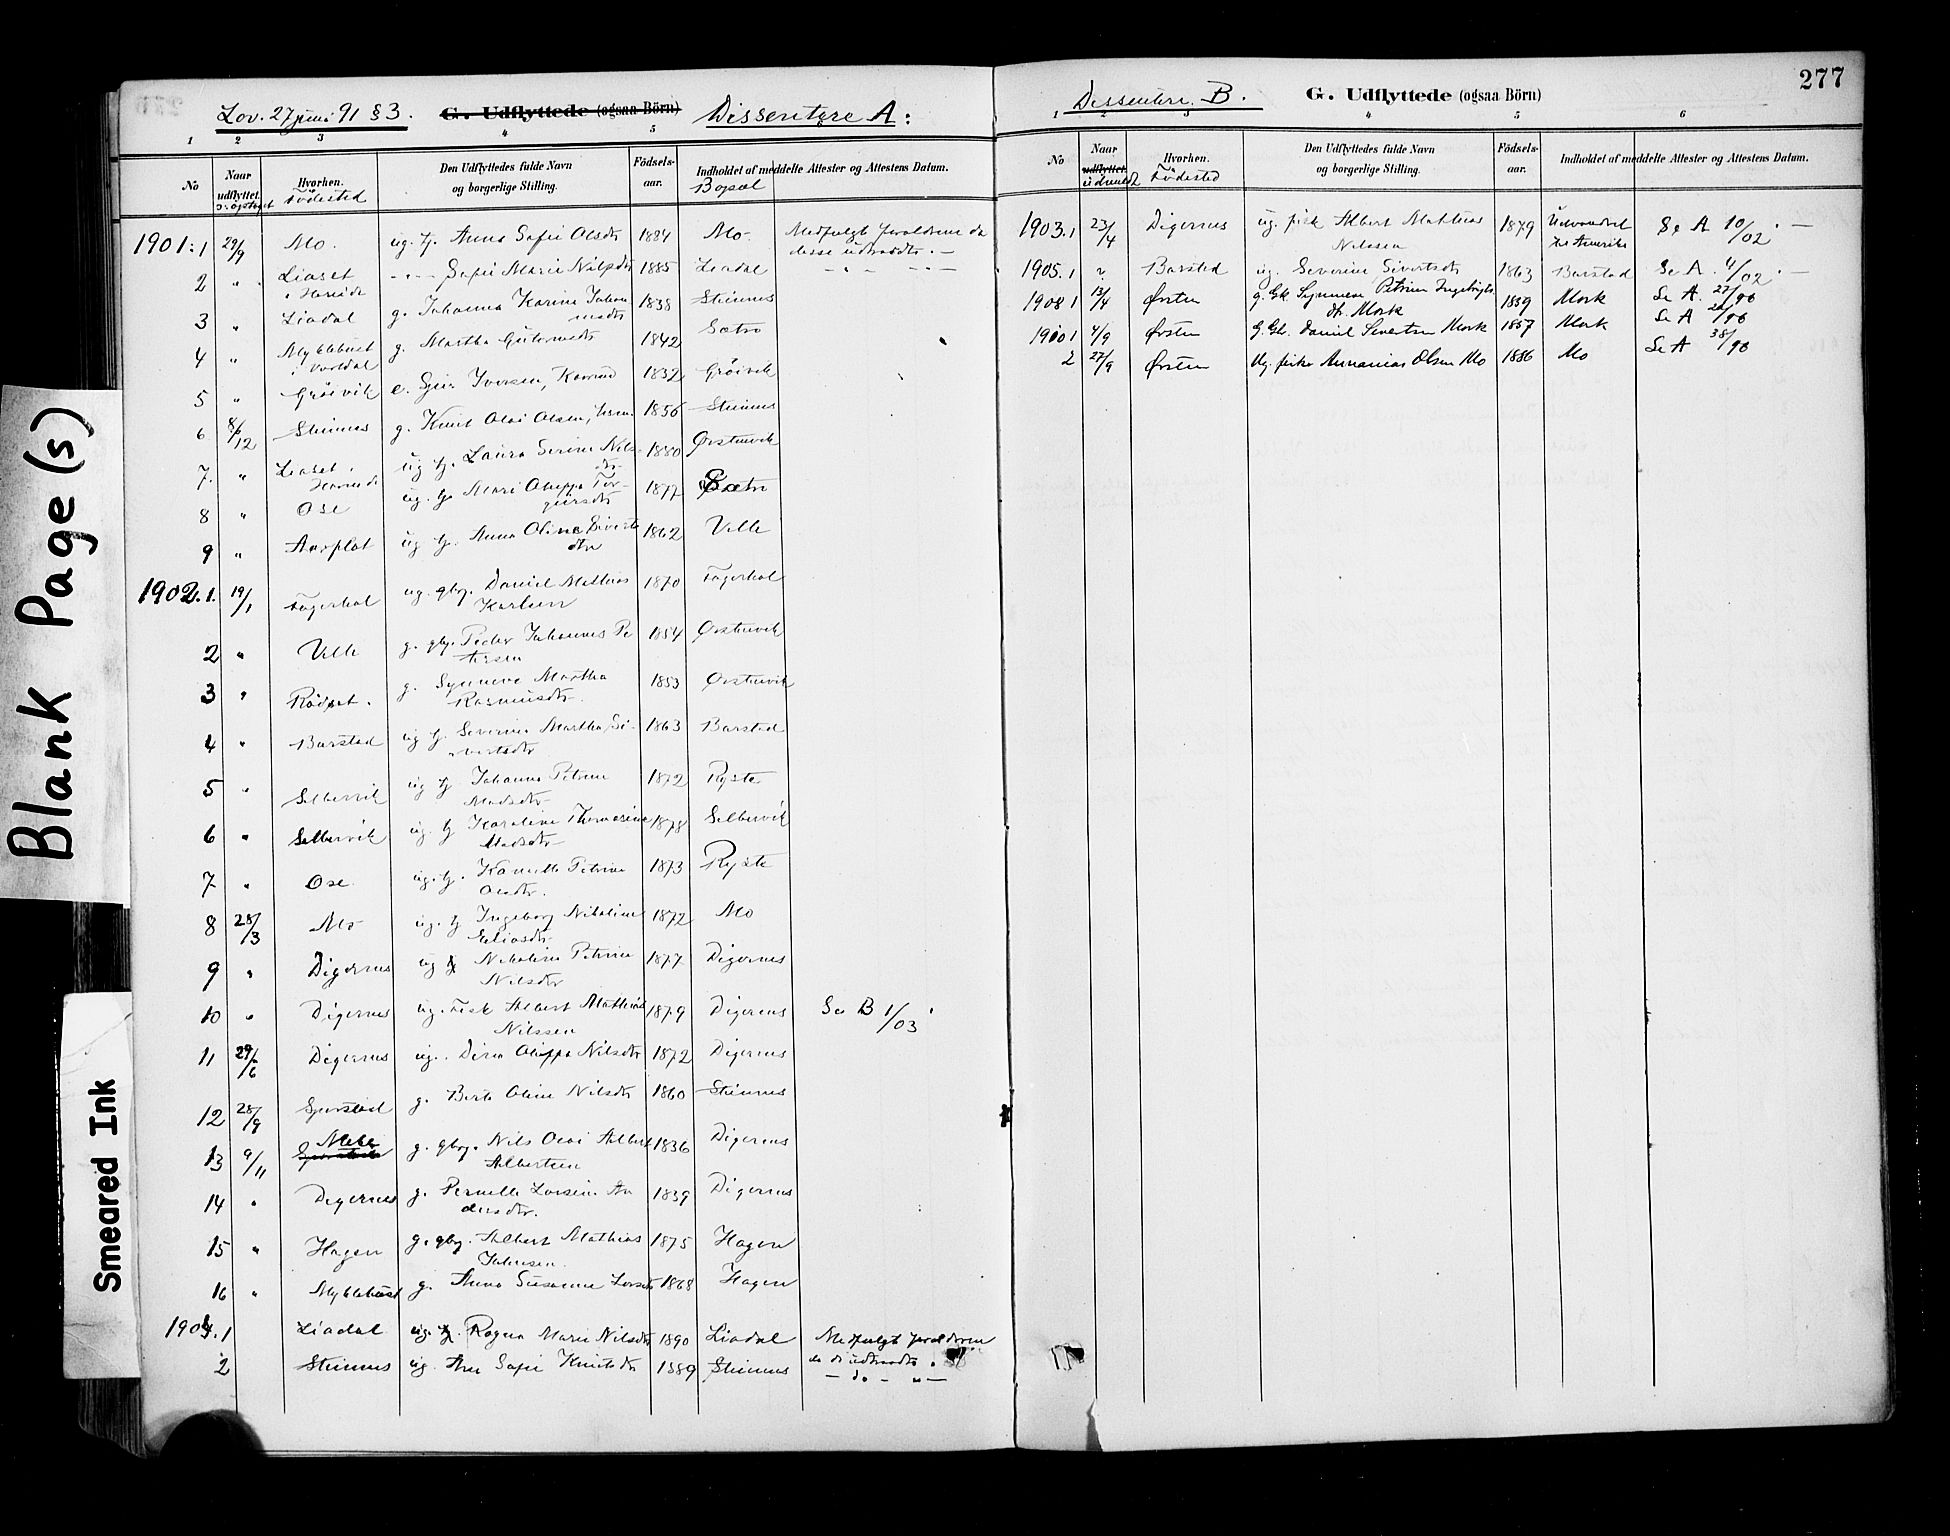 Blank Page(s)
Smeared Ink
Lov. 27 juni 91 § 3. G. Udflyttede (ogsaa Börn) Dissentere A:
1 2 3 4 5
No Naar udflyttet. Hvorhen. Den Udflyttedes fulde Navn og borgerlige Stilling. Födsels-aar. Indholdet af meddelte Attester og Attestens Datum.
Födested Bopæl
1901: 1 29/9 Mo. ug. tj. Anna Sofie Olsdtr 1884 Mo. Medfulgt forældrene da
disse udtraadte. —
2 " Liaset i Hareide - - - Sofie Marie Nilsdtr 1885 Liadal - " - " -
3 " Liadal g. Johanna Karine Johannesdtr 1838 Steinnes
4 " Myklebust i Vartdal g. Martha Guttormsdtr 1842 Sætre
5 " Gröivik e. Sjur Iversen, Kaarmd 1832 Gröivik
6 8/12 Steinnes g. Knut Olai Olsen, 1856 Steinnes
7. " Liaset, Hareide ug tj. Laura Serine Nilsdtr 1880 Ørstenvik
8 " Ose ug. tj. Mari Oluffa Torgeirsdtr 1877 Sætre
9 " Aarflot ug tj. Anna Oline Sivertsdtr 1862 Velle
1902. 1. 19/1 Fagerhol ug. gbrg. Daniel Mathias Karlsen 1870 Fagerhol
2 " Velle g. gbr. Peder Johannes Petersen 1854 Ørstenvik
3 " Rödset. g. Synneve Martha Rasmusdtr. 1853 Ørstenvik
4 " Barstad ug tj. Severine Martha Sivertsdtr 1863 Barstad
5 " Selbervik ug tj Johanna Petrine Madsdtr 1872 Ryste
6 " Selbervik ug. tj Karoline Thomasine Madsdtr 1878 Selbervik
7 " Ose ug. tj. Kanutte Petrine Olsdtr. 1873 Ryste
8 28/3 Mo ug. tj Ingeborg Nikoline Eliasdtr. 1872 Mo
9 " Digernes ug tj Nikoline Petrine Nilsdtr 1877 Digernes
10 " Digernes ug. Fisk Albert Mathias Nilssen 1879 Digernes Se B 1/03.
11 29/6 Digernes ug. Dina Oluffa Nilsdtr 1872 Digernes
12 28/9 Sperstad g. Berte Oline Nilsdtr 1860 Steinnes
13 9/11 g. gbrg. Nils Olai Albert Albertsen 1836 Digernes
14 " Digernes g. Pernille Lovise Andersdtr. 1839 Digernes
15 " Hagen g. gbrg. Albert Mathias Johnsen. 1875 Hagen
16 " Myklebust g. Anna Susanne Larsdtr 1868 Hagen
1904. 1 Liadal ug. tj. Ragna Marie Nilsdtr 1890 Liadal Medfulgt forældrene
2 Steinnes ug. Ane Sofie Knutsdtr 1889 Steinnes da de udtraadte.
— do — " —
Dissentere B. G. Udflyttede (ogsaa Börn) 277
1 2 3 4 5 6
No Naar udflyttet. Hvorhen. Den Udflyttedes fulde Navn og borgerlige Stilling. Födsels-aar. Indholdet af meddelte Attester og Attestens Datum.
udmeldt Födested
1903. 1 23/4 Digernes ug. fisk Albert Mathias Nilssen 1879 Udvandret til Amerika Se A 10/02. —
1905. 1 ? Barsted ug. Severine Sivertsdtr 1863 Barstad Se A. 4/02. —
1908 1 13/4 Ørsten g. Gk Synneve Petrine Ingebrigtsdtr. Mork 1839 Mork Se A. 27/98
1910 1 4/9 Ørsten G. Gbr. Daniel Sivertsen Mork 1857 Mork Se A 26/98
2 27/9 Ørsten Ug. fisker Annanias Olsen Mo 1886 Mo Se A 38/98